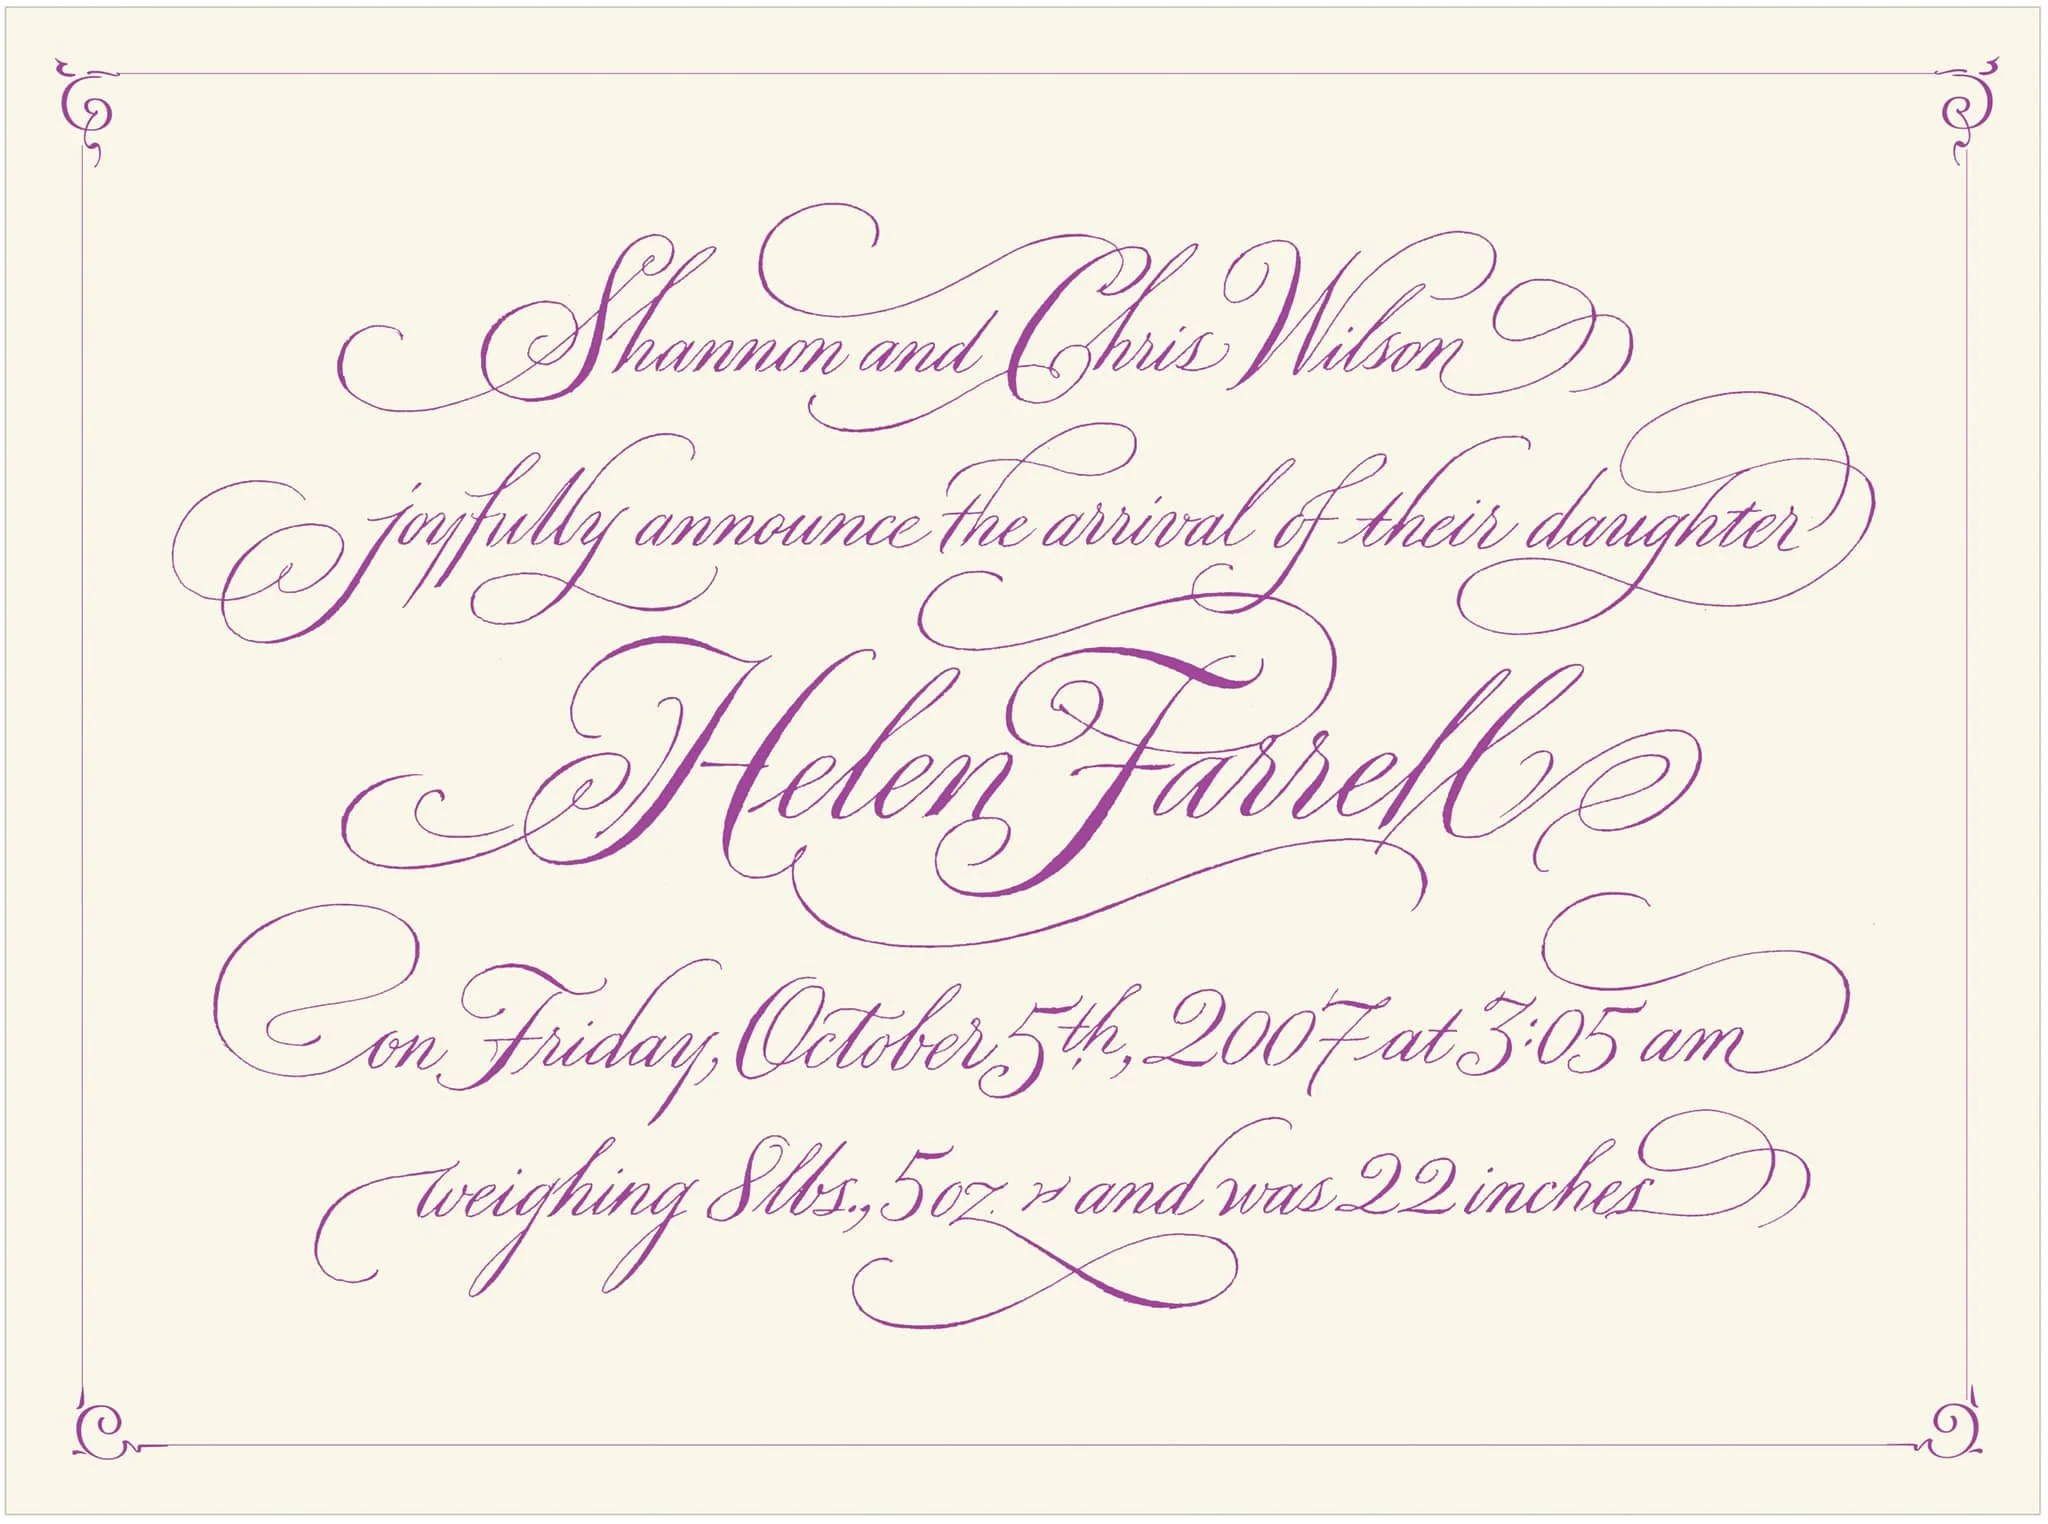 Shannon and Chris Wilson
joyfully announce the arrival of their daughter
Helen Farrell
on Friday, October 5th, 2007 at 3:05 am
weighing 8lbs., 5oz. ~ and was 22 inches